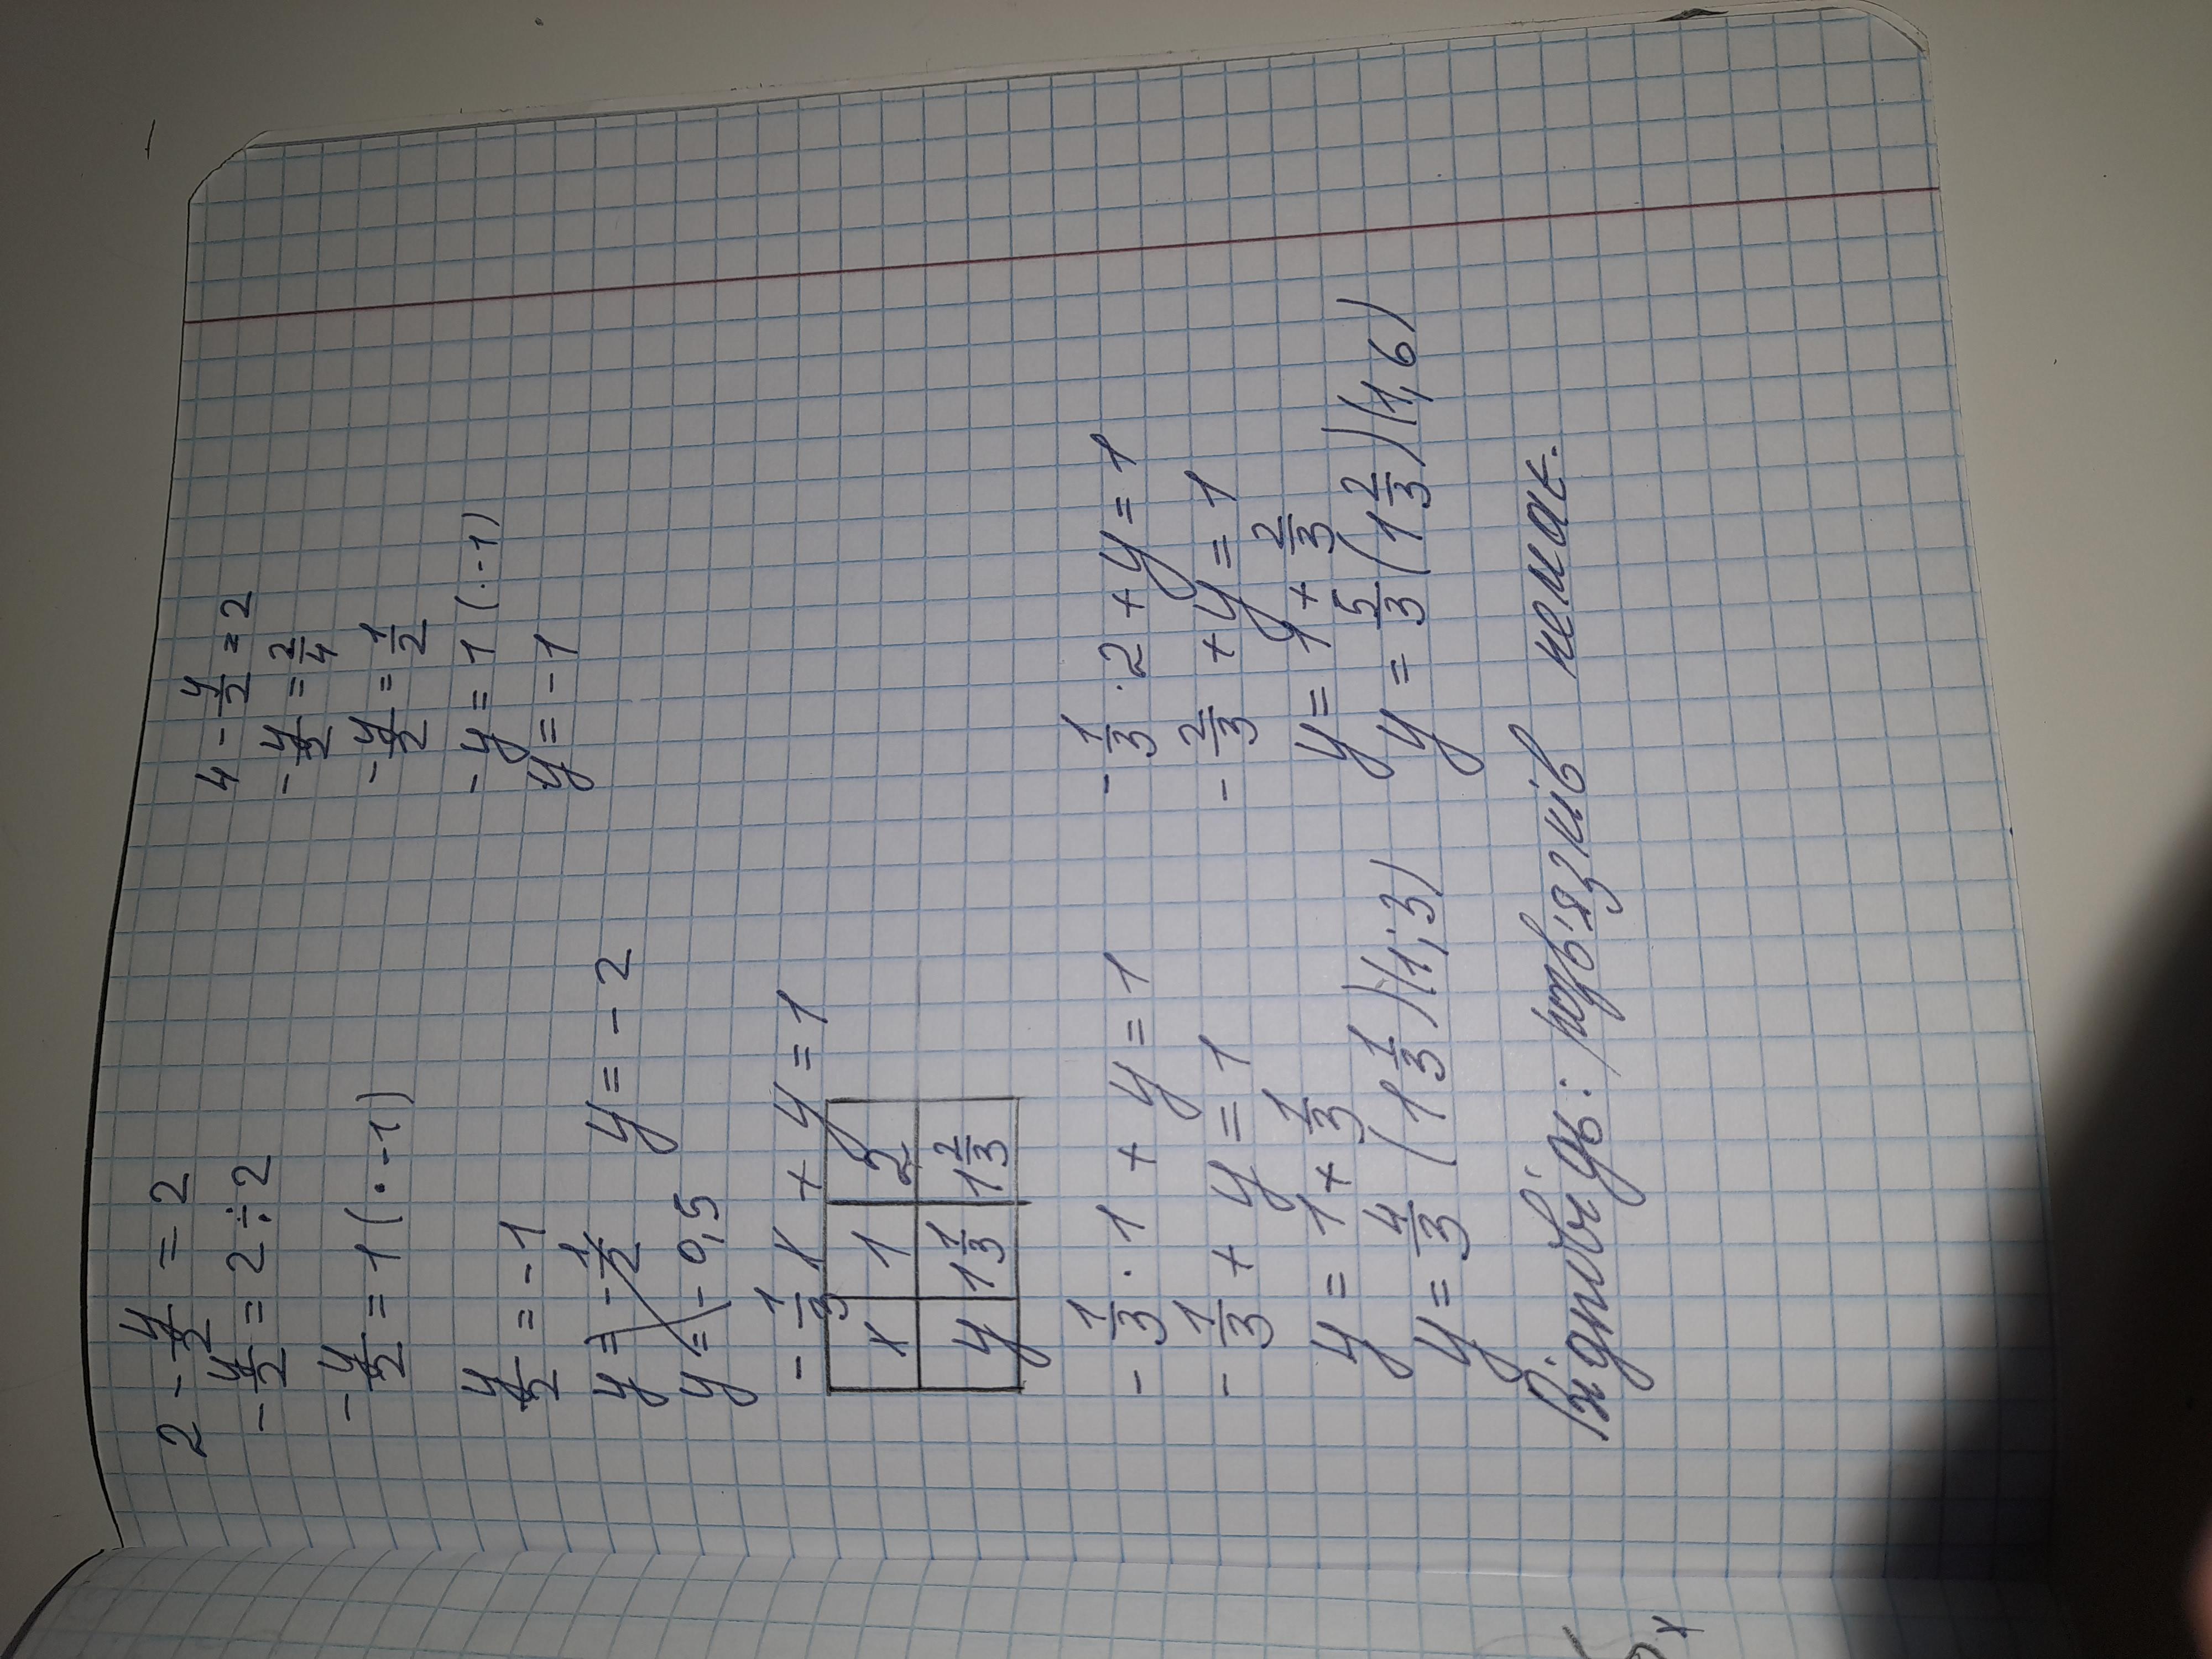 2 - y/2 = 2
- y/2 = 2 ÷ 2
- y/2 = 1 (· -1)
y/2 = -1
y = - 1/2 y = - 2
y = - 0,5
4 - y/2 = 2
- y/2 = 2/4
- y/2 = 1/2
- y = 1 (· -1)
y = -1
- 1/3 x + y = 1
x 1 2
y 1 1/3 1 2/3
- 1/3 · 1 + y = 1
- 1/3 + y = 1
y = 1 + 1/3
y = 4/3 (1 1/3) (1,3)
- 1/3 · 2 + y = 1
- 2/3 + y = 1
y = 1 + 2/3
y = 5/3 (1 2/3) (1,6)
Відповідь: розв'язків немає.
x